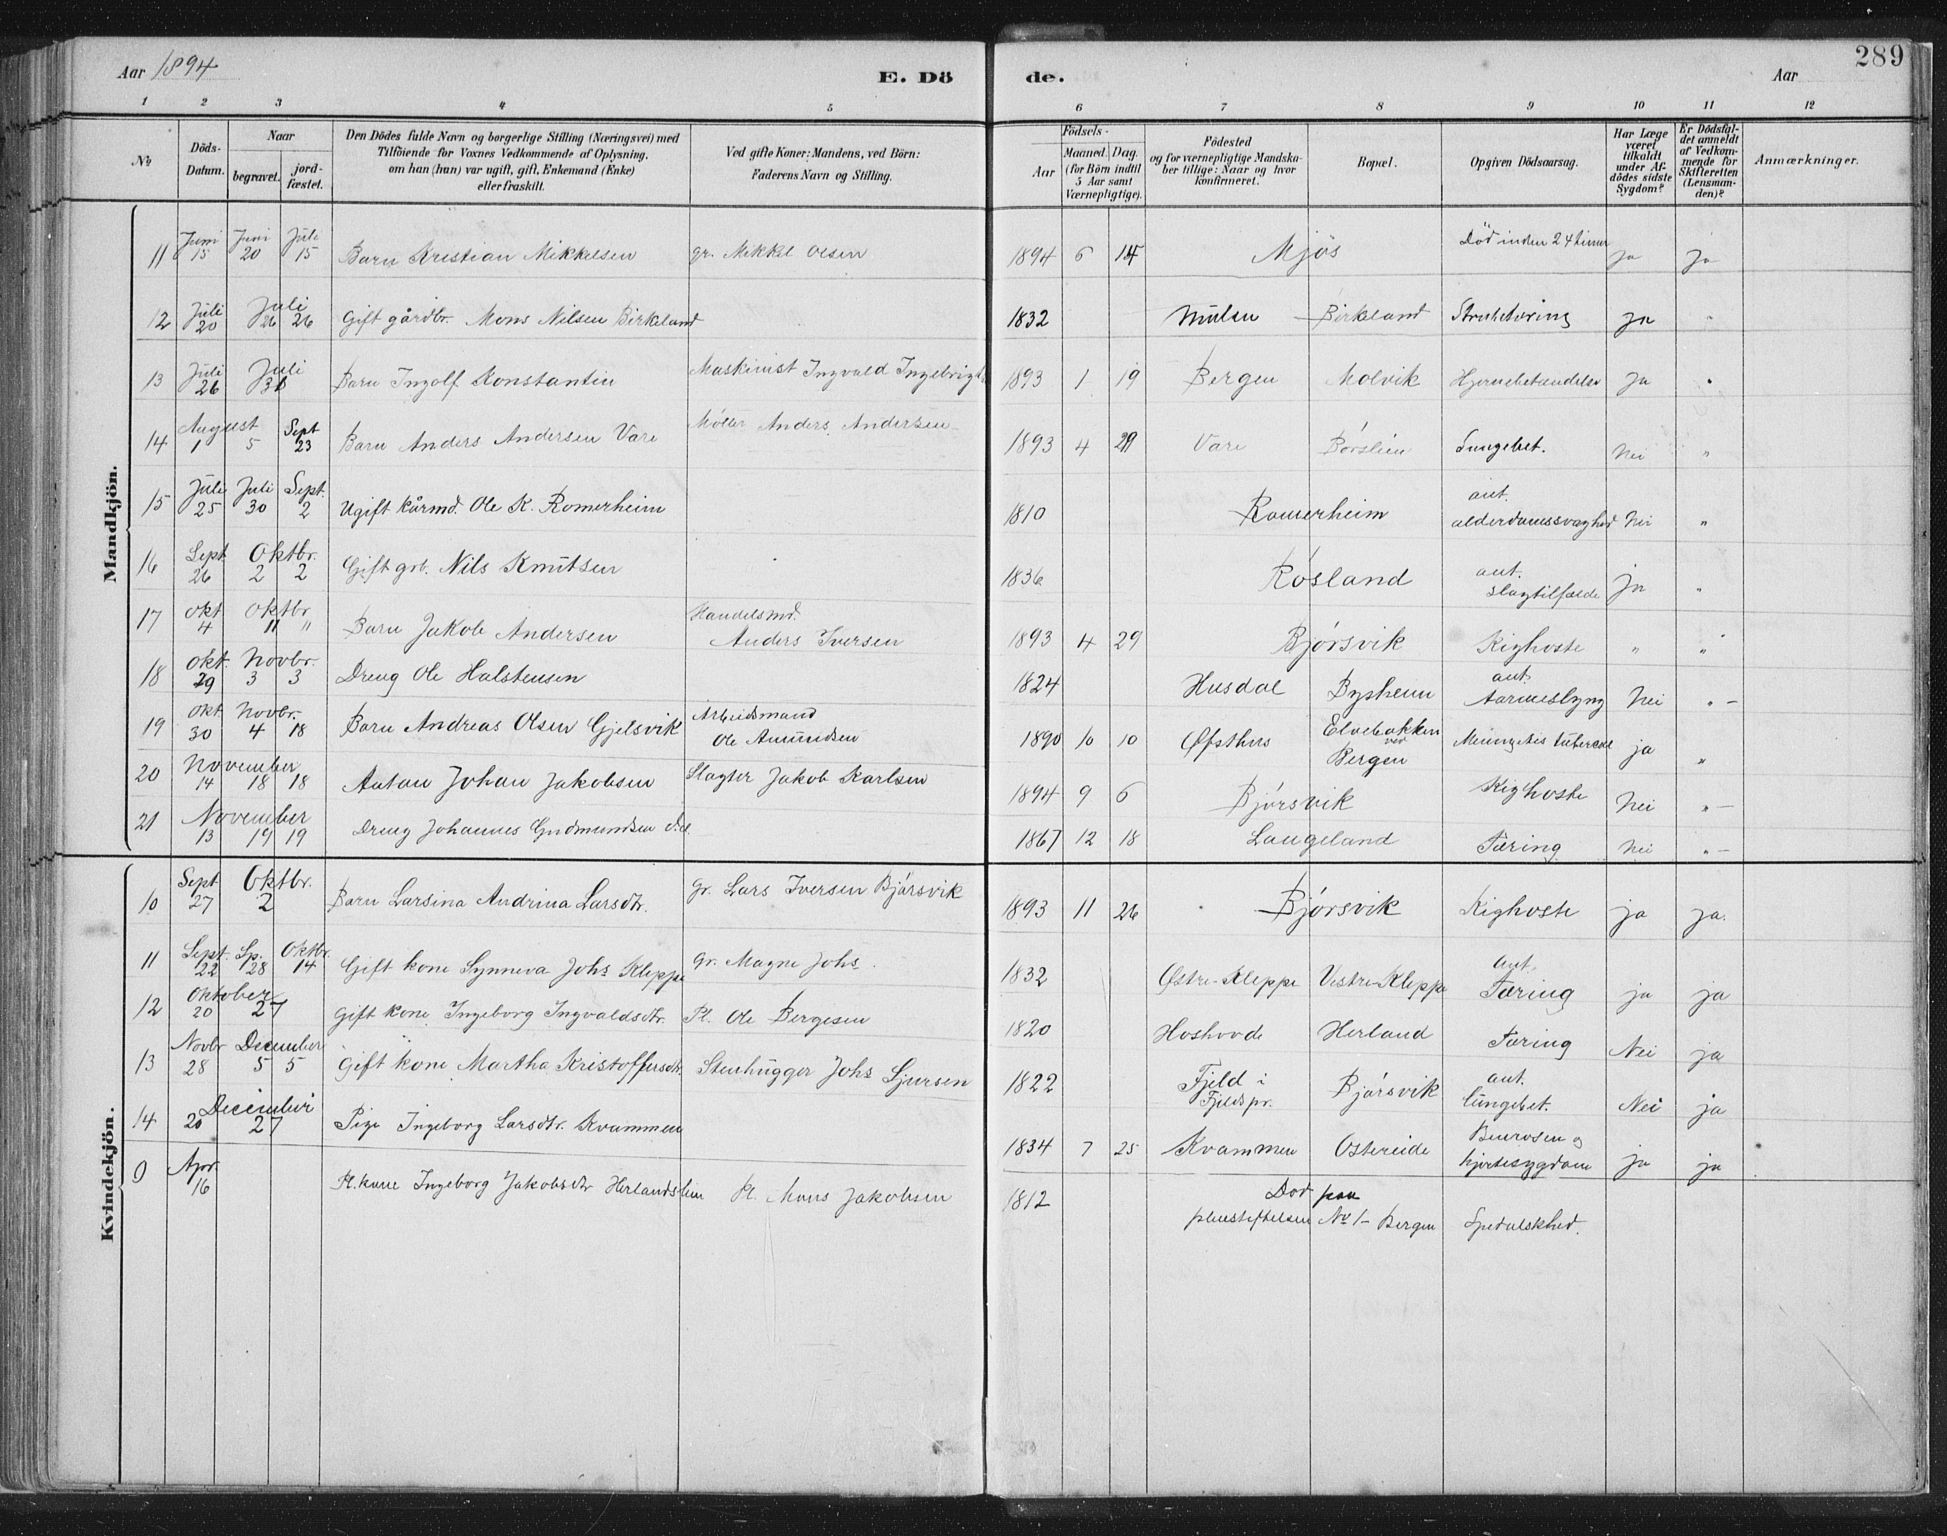 Aar 1894 E. Dö de. Aar 289
1 2 3 4 5 6 7 8 9 10 11 12
No Döds-Datum. Naar begravet. jordfæstet. Den Dödes fulde Navn og borgerlige Stilling (Næringsvei) med Tilföiende for Voxnes Vedkommende af Oplysning, om han (hun) var ugift, gift, Enkemand (Enke) eller fraskilt. Ved gifte Koner: Mandens, ved Börn: Faderens Navn og Stilling. Födsels- Aar Maaned. Dag. (for Börn indtil 5 Aar samt Værnepligtige). Födested og for værnepligtige Mandskaber tillige: Naar og hvor konfirmeret. Bopæl. Opgiven Dödsaarsag. Har Læge været tilkaldt under Afdödes sidste Sygdom? Er Dödsfaldet anmeldt af Vedkommende for Skifteretten (Lensmanden)? Anmærkninger.
Mandkjön.
11 Juni 15 Juni 20 Juli 15 Barn Kristian Mikkelsen gr. Mikkel Olsen 1894 6 15 Mjøs Död inden 24 timer ja ja
12 Juli 20 Juli 26 26 Gift gårdbr. Mons Nilsen Birkeland 1832 Mulen Birkeland Strubetæring ja "
13 Juli 26 Juli 31 Barn Ingolf Konstantin Maskinist Ingvald Ingebrigts 1893 1 19 Bergen Molvik Hjernebetændelse ja "
14 August 1 5 Sept 23 Barn Anders Andersen Vare Møller Anders Andersen 1893 4 29 Vare Børslien Lungebet. Nei "
15 Juli 25 Juli 30 Sept. 2 Ugift kårmd. Ole K. Romerheim 1810 Romerheim ant. alderdomssvaghed Nei "
16 Sept 26 Oktbr. 2 2 Gift grb. Nils Knutsen 1836 Røsland ant. slagtilfælde ja "
17 Okt 4 Oktbr. 11 " Barn Jakob Andersen Handelsmd. Anders Iversen 1893 4 29 Bjørsvik Kighoste " "
18 Okt. 29 Novbr. 3 3 Dreng Ole Halstensen 1824 Husdal Bysheim ant. Tarmeslyng Nei " -
19 Okt 30 Novbr. 4 18 Barn Andreas Olsen Gjelsvik Arbeidsmand Ole Amundsen 1890 10 10 Øfsthus Elvebakken ved Bergen Meningetis tubercul ja "
20 November 14 18 18 Anton Johan Jakobsen Slagter Jakob Karlsen 1894 9 6 Bjørsvik Kighoste Nei " -
21 November 13 19 19 Dreng Johannes Gudmundsen 1867 12 18 Langeland Tæring Nei " -
Kvindekjön.
10 Sept 27 Oktbr. 2 Barn Larsina Andrina Larsdtr. gr. Lars Iversen Bjørsvik 1893 11 26 Bjørsvik Kighoste ja ja.
11 Sept. 22 Sp. 28 Oktbr. 14 Gift kone Synneva Johs Kleppe gr. Magne Johs. 1832 Østre-Kleppe Vestre-Kleppe ant. Tæring ja ja
12 Oktober 20 27 Gift kone Ingeborg Ingvaldsdtr. Pl. Ole Bergesen 1820 Hoshovde Herland Tæring Nei ja
13 Novbr 28 December 5 5 Gift kone Martha Kristoffersdtr. Stenhugger Johs Sjursen 1822 Fjeld i Fjeldspr. Bjørsvik ant. lungebet. Nei ja
14 December 20 27 Pige Ingeborg Larsdtr. Kvammen 1834 7 25 Kvammen Ostereide Benrosen og hjertesygdom ja ja
9 Apr. 16 Pl. kone Ingeborg Jakobsdtr Herlandslien Pl. Mons Jakobsen 1812 Død paa pleiestiftelsen No 1 - Bergen Spedalskhed.